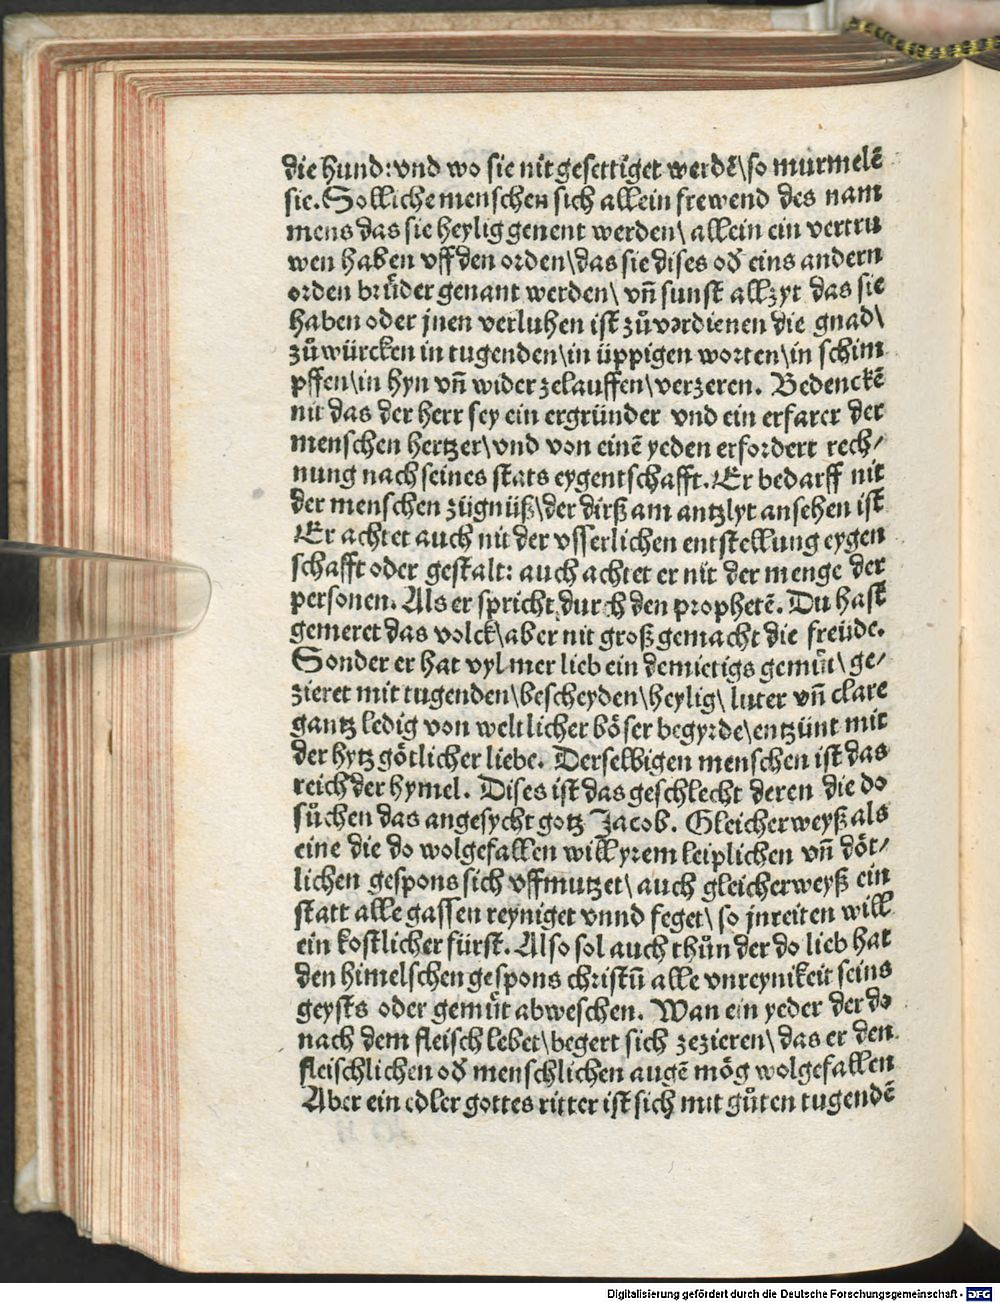 die hund: vnd wo sie nit gesettiget werdẽ\ so murmelẽ
sie. Solliche menschen sich allein frewend des nam
mens das sie heylig genent werden\ allein ein vertru
wen haben vff den orden\ das sie dises od̛ eins andern
orden brůder genant werden\ vñ sunst allzyt das sie
haben oder jnen verluhen ist zůverdienen die gnad\
zů würcken in tugenden\ in üppigen worten\ in schim
pffen\ in hyn vñ wider zelauffen\ verzeren. Bedenckẽ
nit das der herr sey ein ergründer vnd ein erfarer der
menschen hertzer\ vnd von einẽ yeden erfordert rech⸗
nung nach seines stats eygentschafft. Er bedarff nit
der menschen zügnüß\ der dirß am antzlyt ansehen ist
Er achtet auch nit der vsserlichen entstellung eygen
schafft oder gestalt: auch achtet er nit der menge der
personen. Als er spricht durch den prophetẽ. Du hast
gemeret das volck\ aber nit groß gemacht die freüde.
Sonder er hat vyl mer lieb ein demietigs gemüt\ ge⸗
zieret mit tugenden\ bescheyden\ heylig\ luter vñ clare
gantz ledig von weltlicher böser begyrde\ entzünt mit
der hytz götlicher liebe. Derselbigen menschen ist das
reich der hymel. Dises ist das geschlecht deren die do
sůchen das angesycht gotz Jacob. Gleicherweyß als
eine die do wolgefallen will yrem leiplichen vñ döt⸗
lichen gespons sich vffmutzet\ auch gleicherweyß ein
statt alle gassen reyniget vnnd feget\ so jnreiten will
ein kostlicher fürst. Also sol auch thůn der do lieb hat
den himelschen gespons christũ alle vnreynikeit seins
geysts oder gemüt abweschen. Wan ein yeder der do
nach dem fleisch lebet\ begert sich zezieren\ das er den
fleischlichen od̛ menschlichen augẽ mög wolgefallen
Aber ein edler gottes ritter ist sich mit gůten tugendẽ
Digitalisierung gefördert durch die Deutsche Forschungsgemeinschaft - DFG